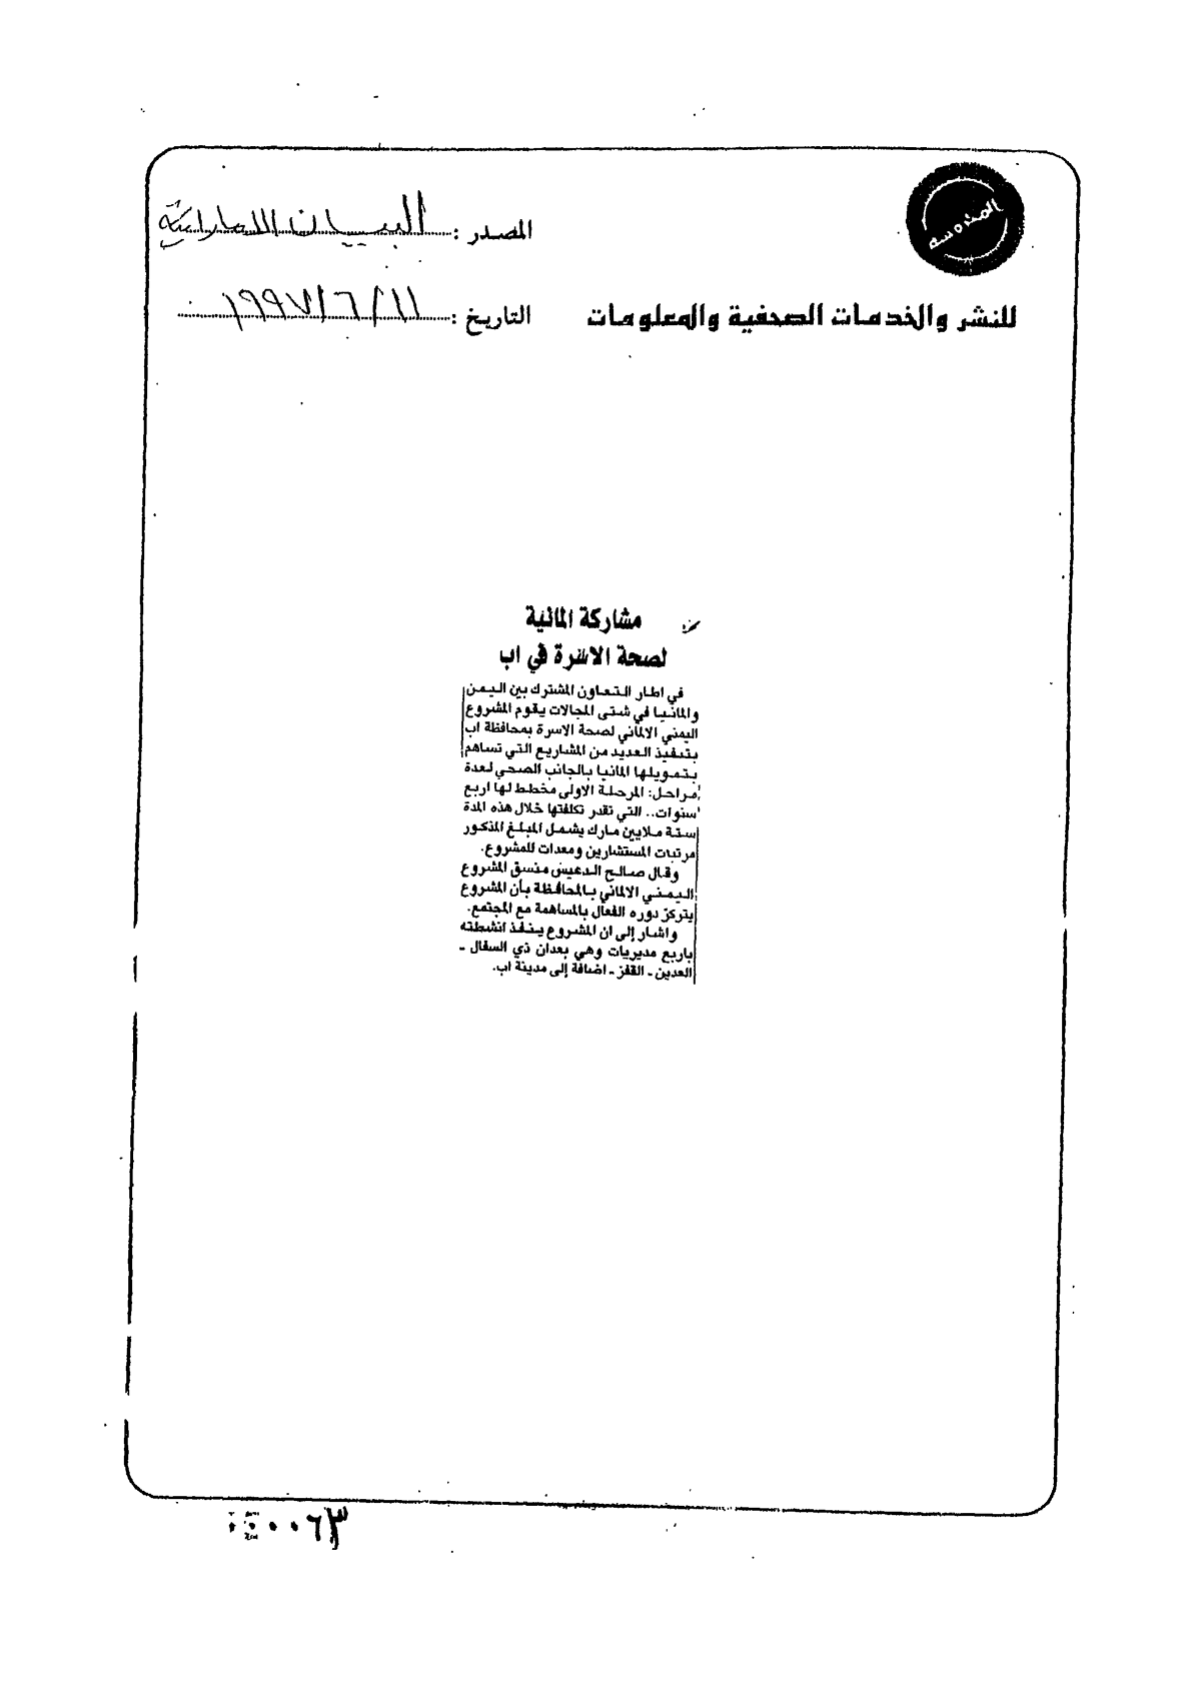 المصدر : البيان الاماراتية
للنشر والخدمات الصحفية والمعلومات
التاريخ : ١٩٩٧/٦/١١
مشاركة المانية
لصحة الاسرة في اب
في اطار التعاون المشترك بين اليمن
والمانيا في شتى المجالات يقوم المشروع
اليمني الالماني لصحة الاسرة بمحافظة اب
بتنفيذ العديد من المشاريع التي تساهم
بتمويلها المانيا بالجانب الصحي لعدة
مراحل: المرحلة الاولى مخطط لها اربع
سنوات.. التي تقدر تكلفتها خلال هذه المدة
ستة ملايين مارك يشمل المبلغ المذكور
مرتبات المستشارين ومعدات للمشروع.
وقال صالح الدعيس منسق المشروع
اليمني الالماني بالمحافظة بأن المشروع
يتركز دوره الفعال بالمساهمة مع المجتمع.
واشار إلى ان المشروع ينفذ انشطته
باربع مديريات وهي بعدان ذي السفال -
العدين - القفز - اضافة إلى مدينة اب.